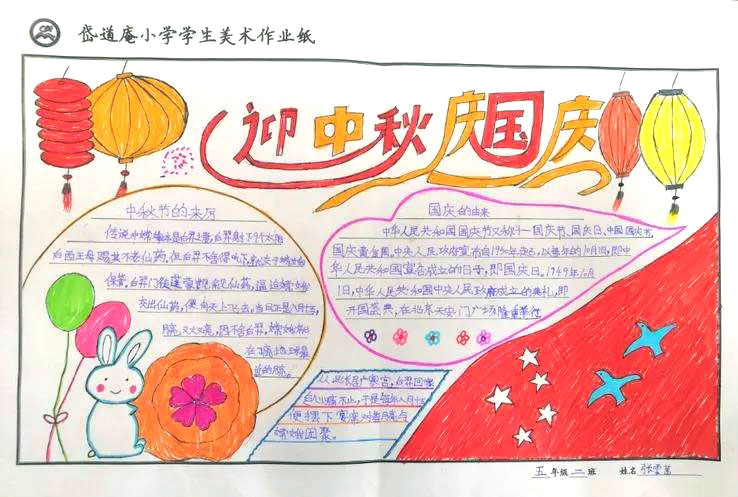 岱道庵小学学生美术作业纸
迎中秋庆国庆
中秋节的来历
传说中嫦娥本是后羿之妻,后羿射下9个太阳
后西王母赐其不老仙药,但后羿不舍得吃下,就交于嫦娥
保管,后羿门徒蓬蒙觊觎仙药,逼迫嫦娥
交出仙药,
便向天上飞去,当日正是八月十五,
月亮又大又亮,因不舍后羿,嫦娥
在了离地球最
近的月亮。
从此长居广寒宫,后羿回家
后心痛不止,于是每年八月十五
便摆下宴席对着月亮与
嫦娥团聚。
国庆的由来
中华人民共和国国庆节又称十一国庆节、国庆日、中国国庆节、
国庆黄金周。中央人民政府宣布自1950年起,以每年的10月1日,即中
华人民共和国宣告成立的日子,即国庆日。1949年10月
1日,中华人民共和国中央人民政府成立的典礼,即
开国盛典,在北京天安门广场隆重举行
五年级二班 姓名